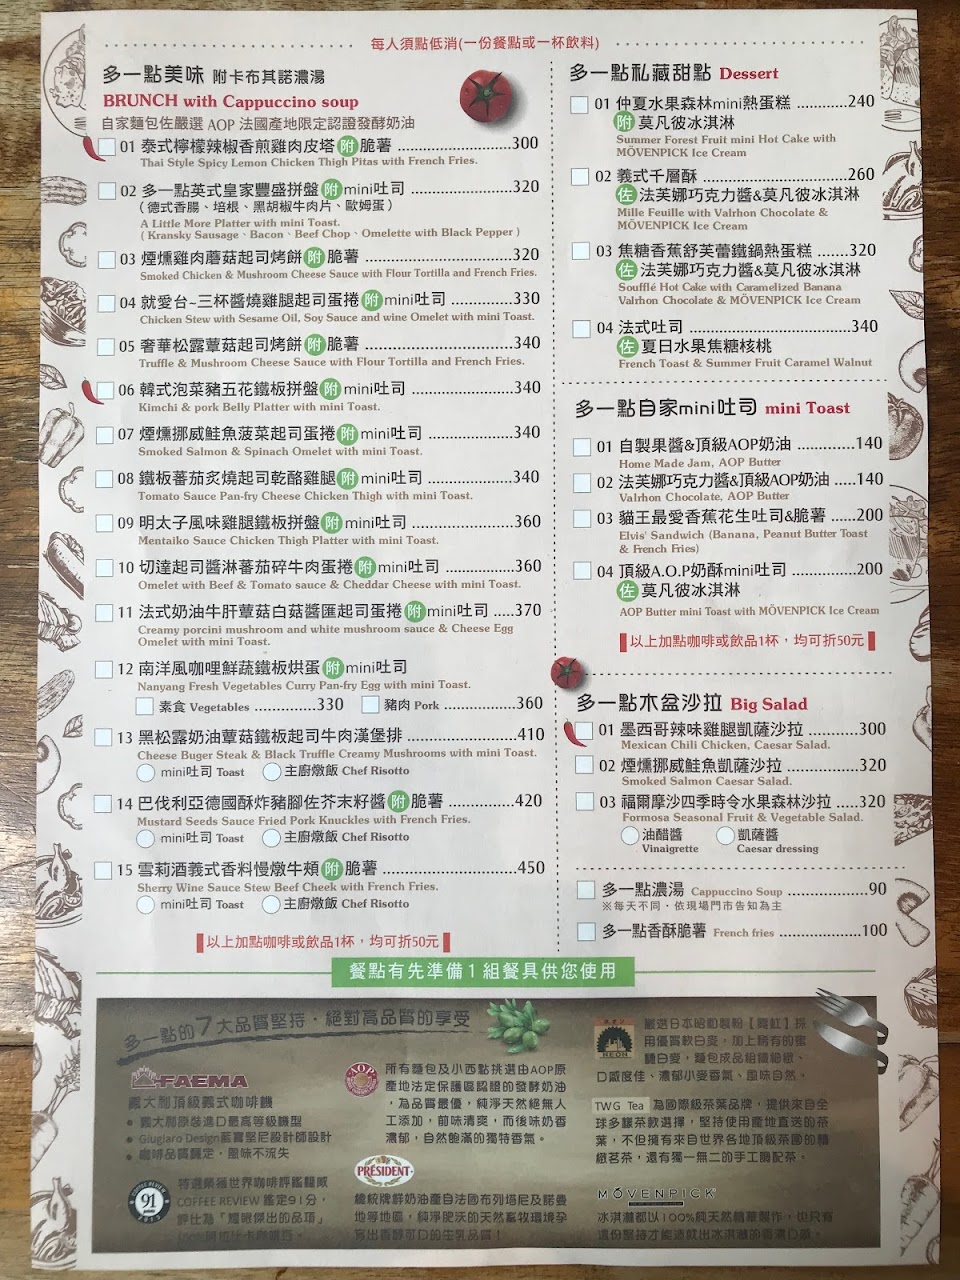 每人須點低消(一份餐點或一杯飲料)
多一點美味 附卡布其諾濃湯
BRUNCH with Cappuccino soup
自家麵包佐嚴選 AOP 法國產地限定認證發酵奶油
01 泰式檸檬辣椒香煎雞肉皮塔附脆薯 300
Thai Style Spicy Lemon Chicken Thigh Pitas with French Fries.
02 多一點英式皇家豐盛拼盤附mini吐司 320
(德式香腸、培根、黑胡椒牛肉片、歐姆蛋)
A Little More Platter with mini Toast.
( Kransky Sausage、Bacon、Beef Chop、Omelette with Black Pepper )
03 煙燻雞肉蘑菇起司烤餅附脆薯 320
Smoked Chicken & Mushroom Cheese Sauce with Flour Tortilla and French Fries.
04 就愛台~三杯醬燒雞腿起司蛋捲附mini吐司 330
Chicken Stew with Sesame Oil, Soy Sauce and wine Omelet with mini Toast.
05 奢華松露蕈菇起司烤餅附脆薯 340
Truffle & Mushroom Cheese Sauce with Flour Tortilla and French Fries.
06 韓式泡菜豬五花鐵板拼盤附mini吐司 340
Kimchi & pork Belly Platter with mini Toast.
07 煙燻挪威鮭魚菠菜起司蛋捲附mini吐司 340
Smoked Salmon & Spinach Omelet with mini Toast.
08 鐵板蕃茄炙燒起司乾酪雞腿附mini吐司 340
Tomato Sauce Pan-fry Cheese Chicken Thigh with mini Toast.
09 明太子風味雞腿鐵板拼盤附mini吐司 360
Mentaiko Sauce Chicken Thigh Platter with mini Toast.
10 切達起司醬淋蕃茄碎牛肉蛋捲附mini吐司 360
Omelet with Beef & Tomato sauce & Cheddar Cheese with mini Toast.
11 法式奶油牛肝蕈菇白菇醬匯起司蛋捲附mini吐司 370
Creamy porcini mushroom and white mushroom sauce & Cheese Egg
Omelet with mini Toast.
12 南洋風咖哩鮮蔬鐵板烘蛋附mini吐司
Nanyang Fresh Vegetables Curry Pan-fry Egg with mini Toast.
素食 Vegetables 330 豬肉 Pork 360
13 黑松露奶油蕈菇鐵板起司牛肉漢堡排 410
Cheese Buger Steak & Black Truffle Creamy Mushrooms with mini Toast.
mini吐司 Toast 主廚燉飯 Chef Risotto
14 巴伐利亞德國酥炸豬腳佐芥末籽醬附脆薯 420
Mustard Seeds Sauce Fried Pork Knuckles with French Fries.
mini吐司 Toast 主廚燉飯 Chef Risotto
15 雪莉酒義式香料慢燉牛頰附脆薯 450
Sherry Wine Sauce Stew Beef Cheek with French Fries.
mini吐司 Toast 主廚燉飯 Chef Risotto
以上加點咖啡或飲品1杯，均可折50元
多一點私藏甜點 Dessert
01 仲夏水果森林mini熱蛋糕 240
附莫凡彼冰淇淋
Summer Forest Fruit mini Hot Cake with
MÖVENPICK Ice Cream
02 義式千層酥 260
佐法芙娜巧克力醬&莫凡彼冰淇淋
Mille Feuille with Valrhon Chocolate &
MÖVENPICK Ice Cream
03 焦糖香蕉舒芙蕾鐵鍋熱蛋糕 320
佐法芙娜巧克力醬&莫凡彼冰淇淋
Soufflé Hot Cake with Caramelized Banana
Valrhon Chocolate & MÖVENPICK Ice Cream
04 法式吐司 340
佐夏日水果焦糖核桃
French Toast & Summer Fruit Caramel Walnut
多一點自家mini吐司 mini Toast
01 自製果醬&頂級AOP奶油 140
Home Made Jam, AOP Butter
02 法芙娜巧克力醬&頂級AOP奶油 140
Valrhon Chocolate, AOP Butter
03 貓王最愛香蕉花生吐司&脆薯 200
Elvis' Sandwich (Banana, Peanut Butter Toast
& French Fries)
04 頂級A.O.P奶酥mini吐司 200
佐莫凡彼冰淇淋
AOP Butter mini Toast with MÖVENPICK Ice Cream
以上加點咖啡或飲品1杯，均可折50元
多一點木盆沙拉 Big Salad
01 墨西哥辣味雞腿凱薩沙拉 300
Mexican Chili Chicken, Caesar Salad.
02 煙燻挪威鮭魚凱薩沙拉 320
Smoked Salmon Caesar Salad.
03 福爾摩沙四季時令水果森林沙拉 320
Formosa Seasonal Fruit & Vegetable Salad.
油醋醬 凱薩醬
Vinaigrette Caesar dressing
多一點濃湯 Cappuccino Soup 90
※每天不同、依現場門市告知為主
多一點香酥脆薯 French fries 100
餐點有先準備1組餐具供您使用
多一點的7大品質堅持，絕對高品質的享受
FAEMA
義大利頂級義式咖啡機
• 義大利原裝進口最高等級機型
• Giugiaro Design藍寶堅尼設計師設計
• 咖啡品質穩定，風味不流失
91
特選榮獲世界咖啡評鑑權威
COFFEE REVIEW 鑑定91分，
評比為「耀眼傑出的品項」
AOP
所有麵包及小西點挑選由AOP原
產地法定保護區認證的發酵奶油
，為品質最優，純淨天然絕無人
工添加，前味清爽，而後味奶香
濃郁，自然飽滿的獨特香氣。
PRÉSIDENT
總統牌鮮奶油產自法國布列塔尼及諾曼
地等地區，純淨肥沃的天然畜牧環境孕
育出香醇可口的生乳品質！
嚴選日本昭和製粉【霓虹】採
用優質軟白麥，加上稀有的蜜
糖白麥，麵包成品組織細緻、
口感度佳、濃郁小麥香氣、風味自然。
TWG Tea 為國際級茶葉品牌，提供來自全
球多樣茶飲選擇，堅持使用產地直送的茶
葉，不但擁有來自世界各地頂級茶園的精
緻茗茶，還有獨一無二的手工調配茶。
MÖVENPICK
冰淇淋都以100%純天然精華製作，也只有
這份堅持才能造就出冰淇淋的香濃口感。